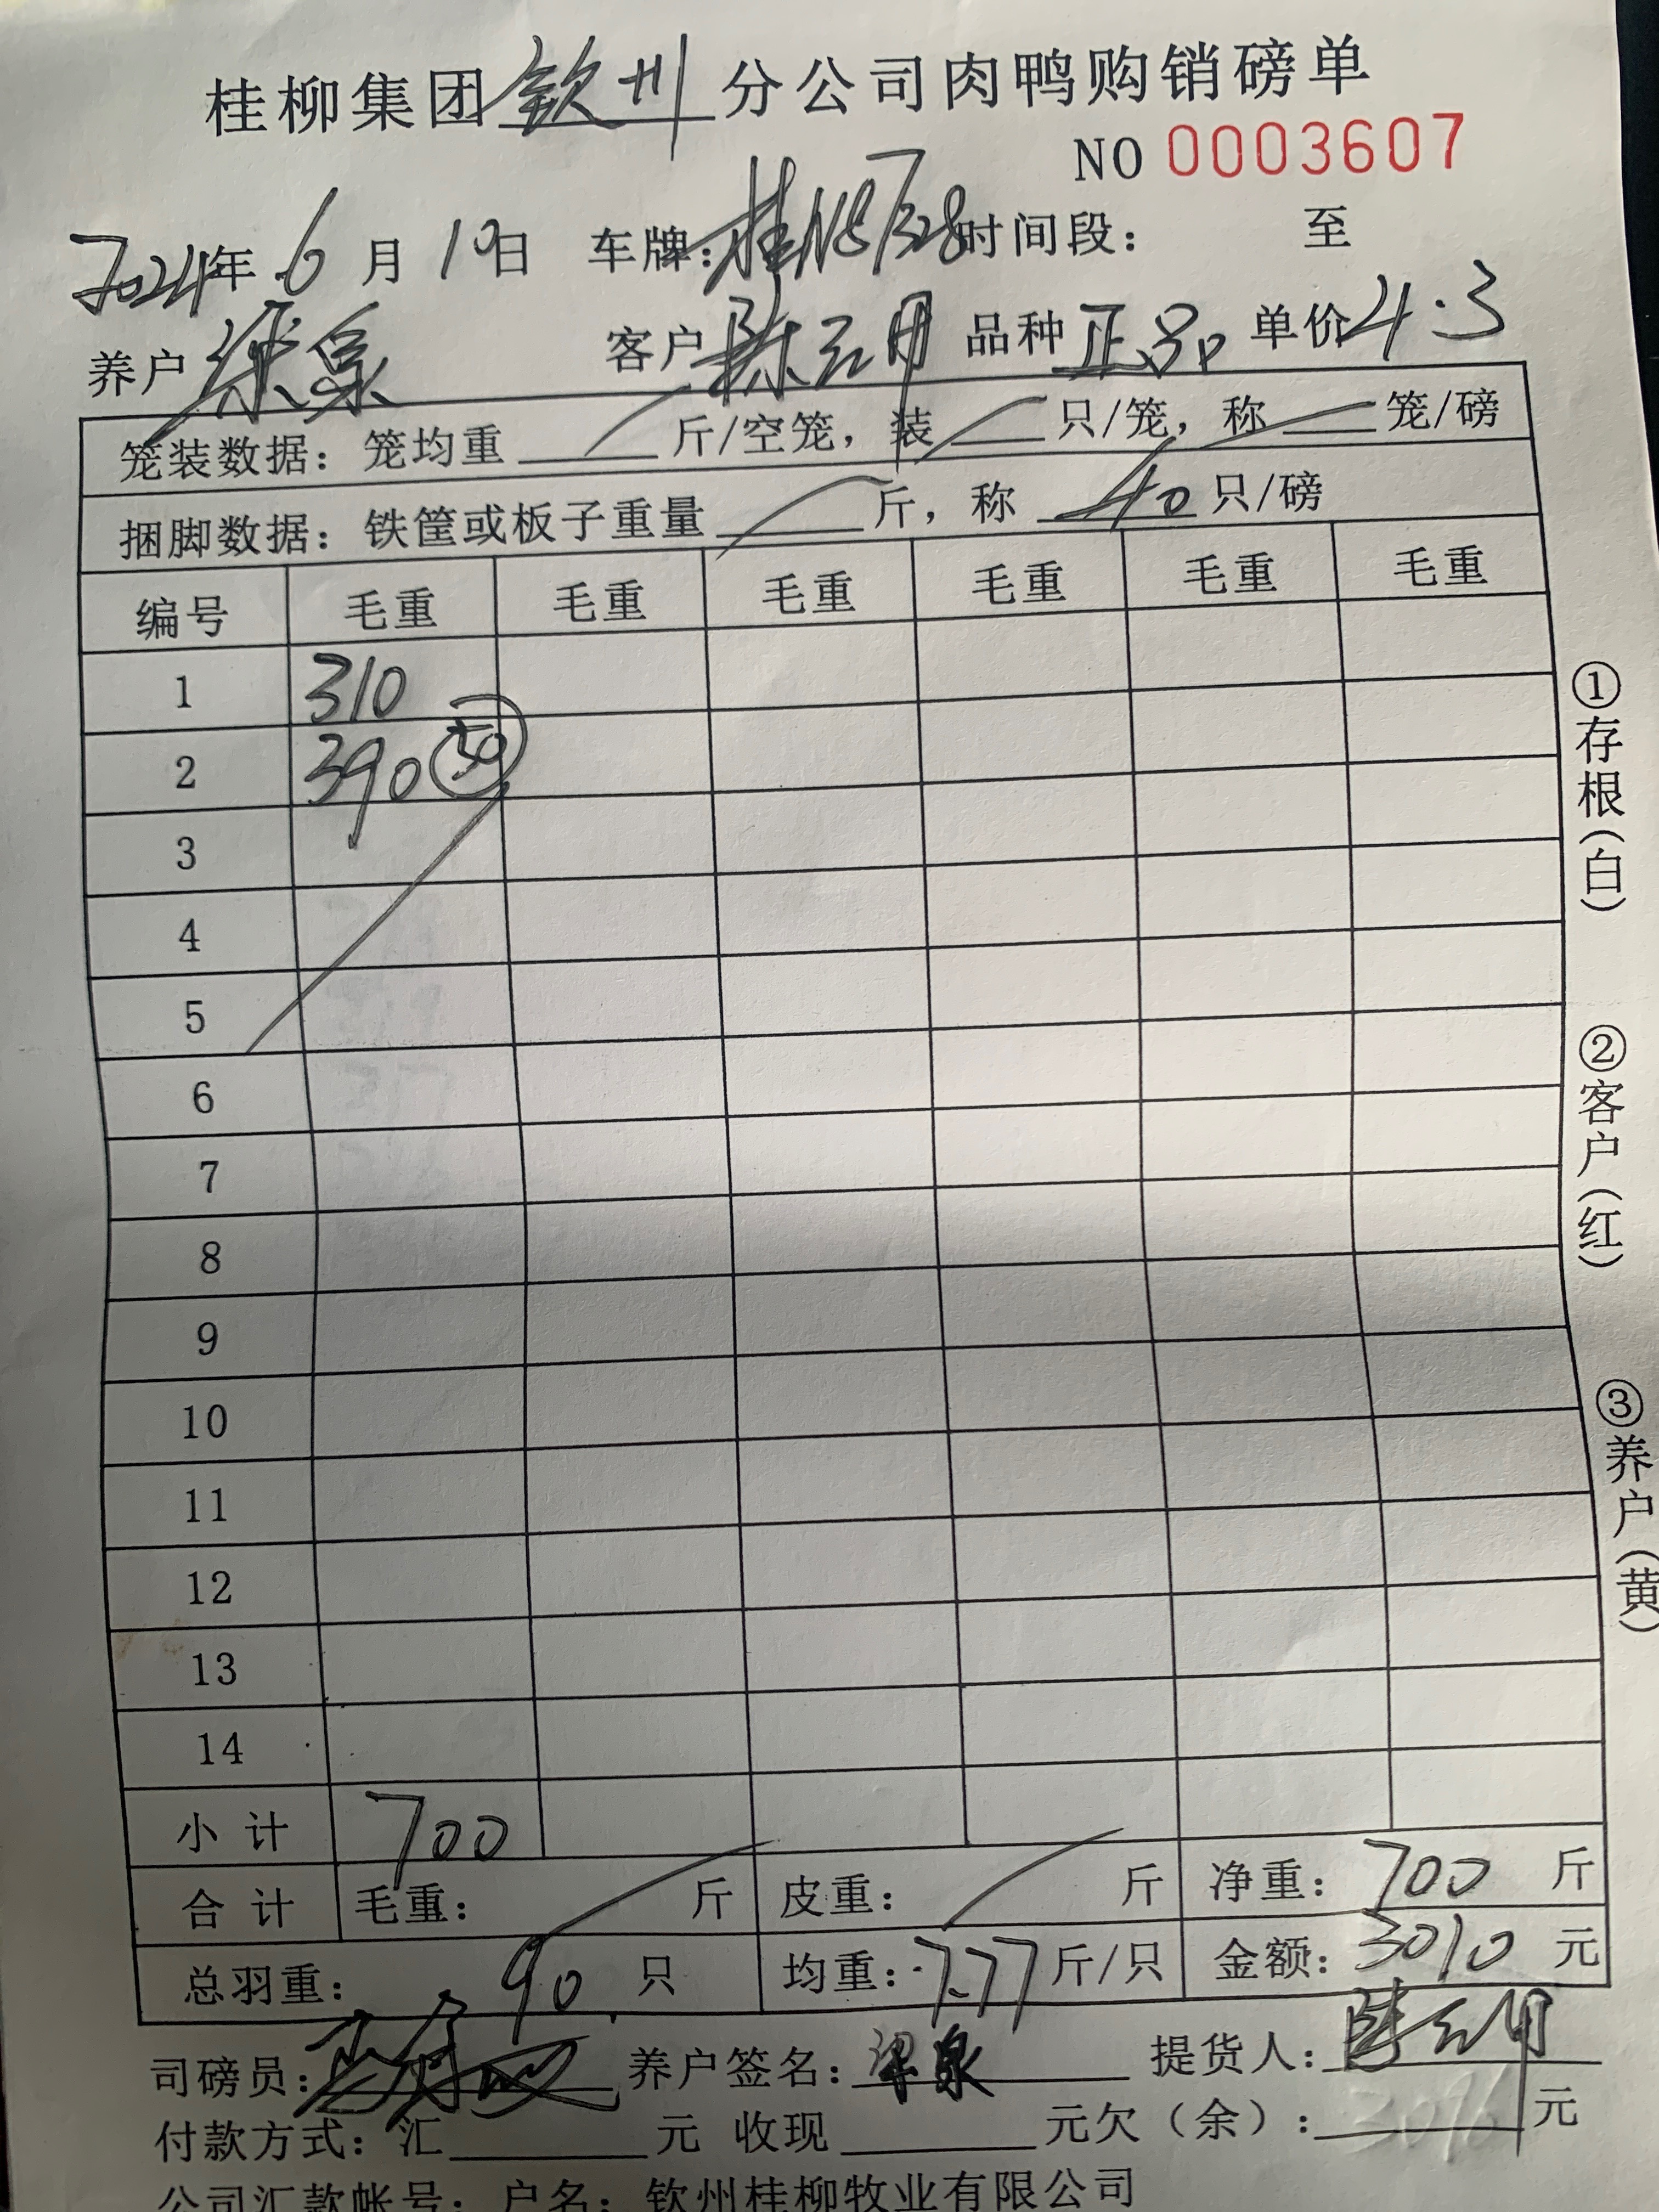 桂柳集团钦州分公司肉鸭购销磅单
NO 0003607
2024年 6月 10日 车牌：桂N8728时间段： 至
养户 梁泉 客户 陈云明 品种 正品 单价 4.3
笼装数据：笼均重 斤/空笼，装 只/笼，称 笼/磅
捆脚数据：铁筐或板子重量 斤，称 40 只/磅
编号 毛重 毛重 毛重 毛重 毛重 毛重
1 310
2 390 50
3
4
5
6
7
8
9
10
11
12
13
14
小计 700
合计 毛重： 斤 皮重： 斤 净重：700 斤
总羽重： 90 只 均重：7.77斤/只 金额：3010 元
司磅员： 养户签名：梁泉 提货人：
付款方式：汇 元 收现 元欠（余）： 元
公司汇款帐号：户名：钦州桂柳牧业有限公司
①存根（白）
②客户（红）
③养户（黄）